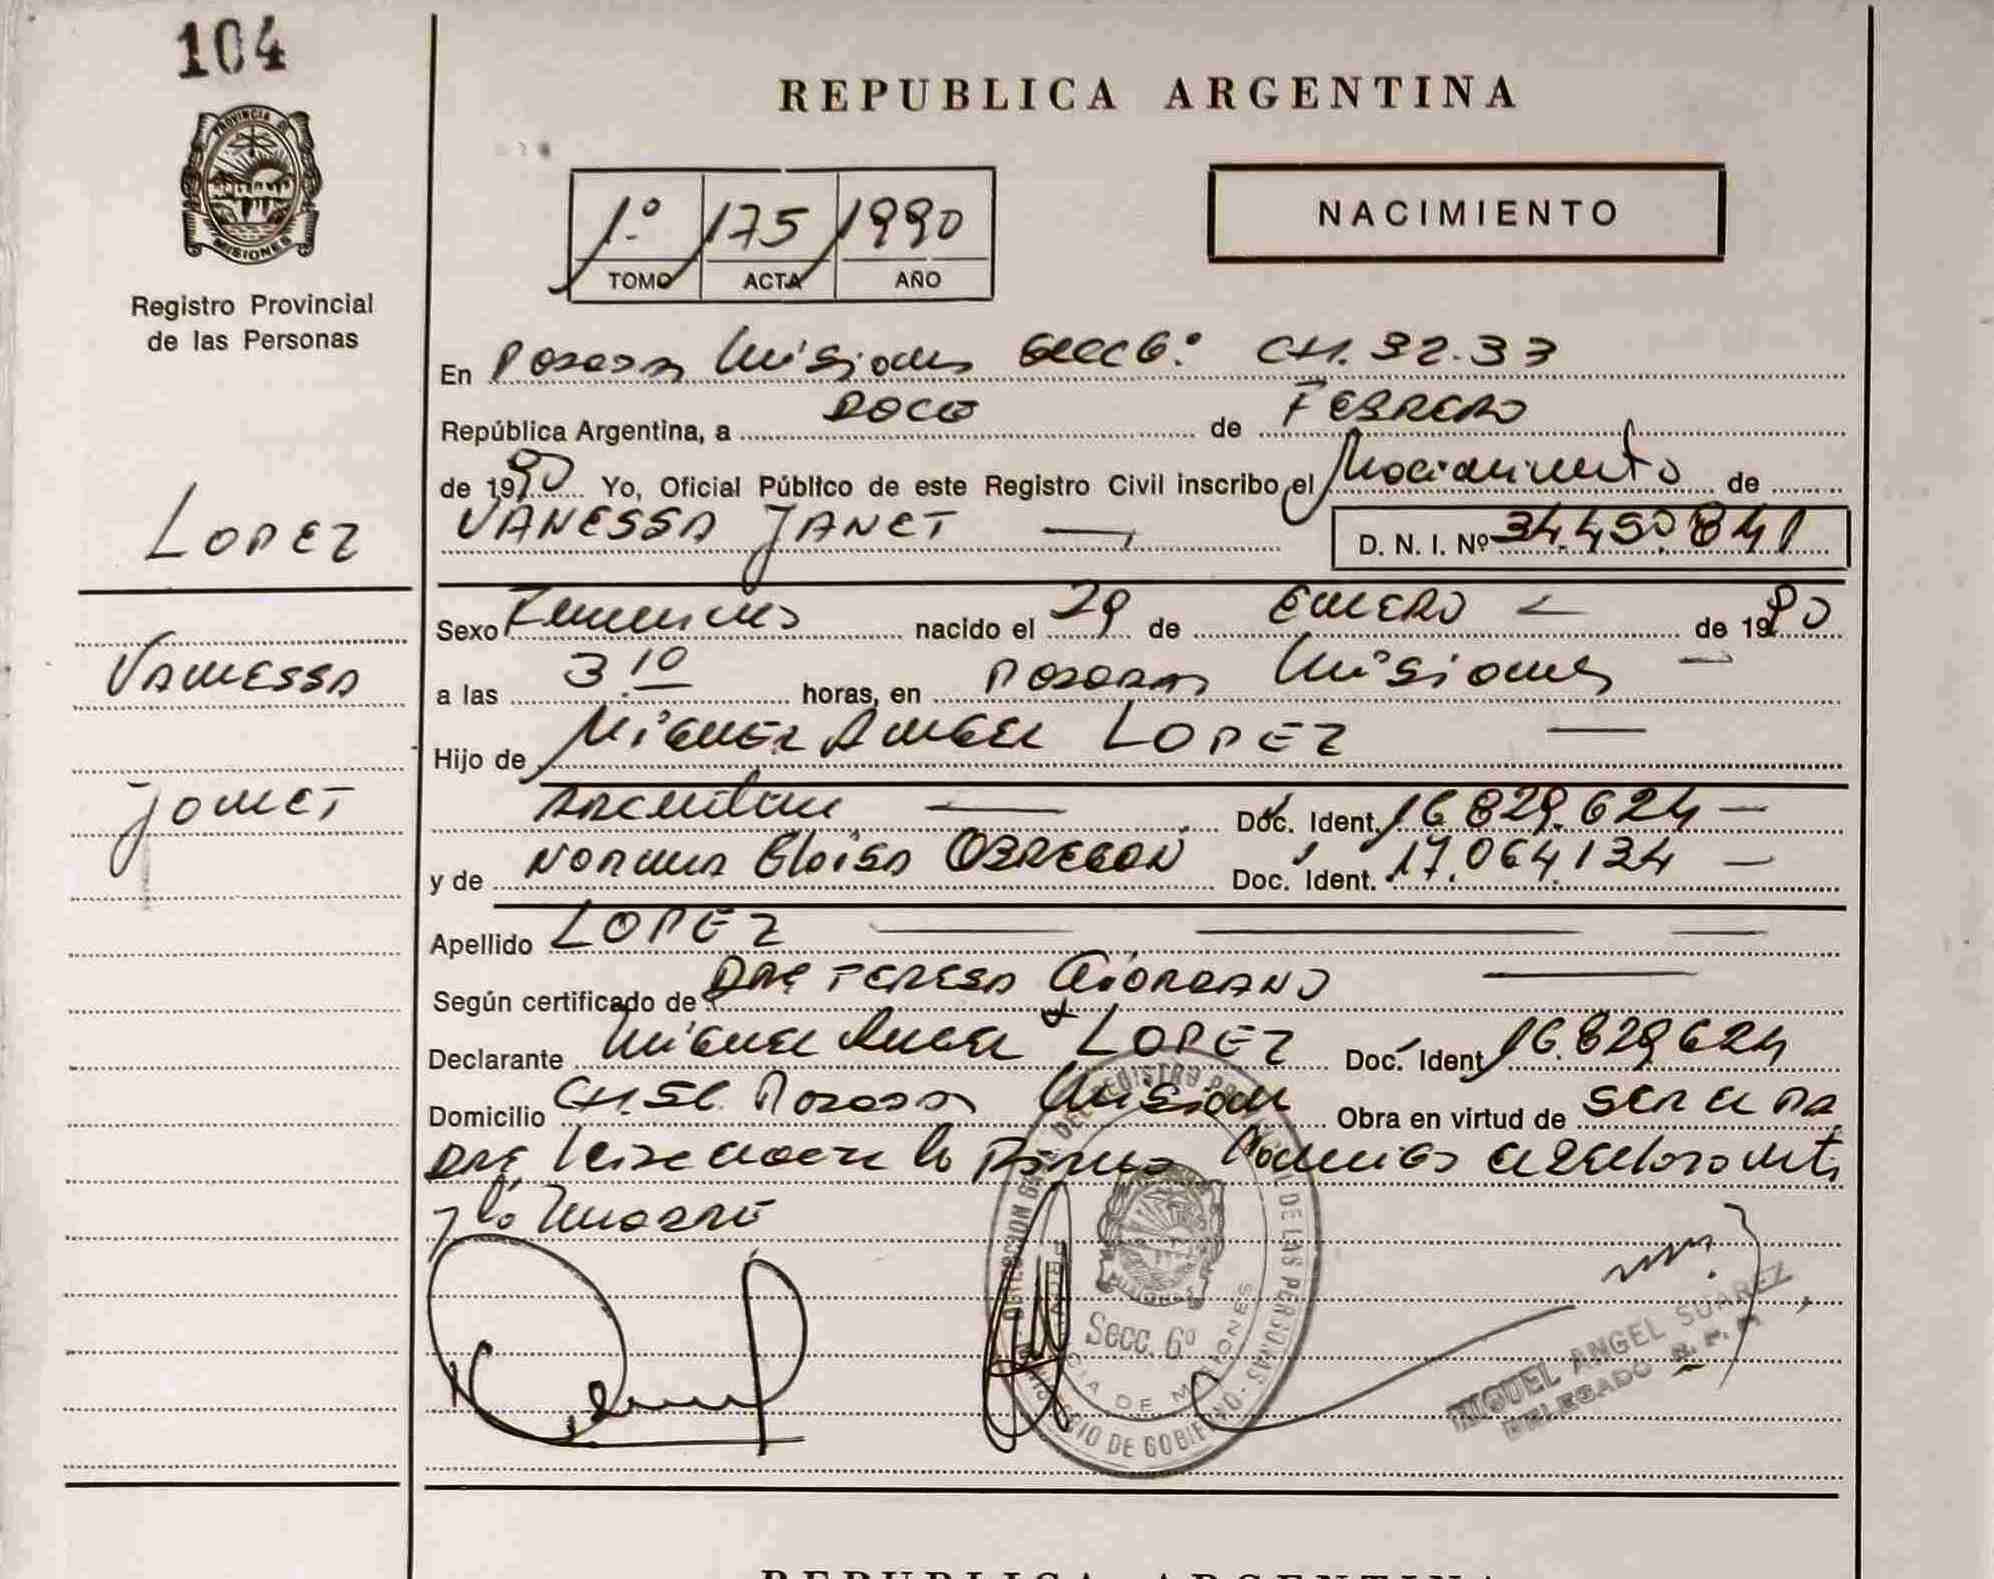 104
PROVINCIA DE
MISIONES
Registro Provincial
de las Personas
LOPEZ
VANESSA
JANET
REPUBLICA ARGENTINA
1º 175 1990
TOMO ACTA AÑO
NACIMIENTO
En Posadas Misiones Secc 6º CH. 32.33
República Argentina, a DOCE de FEBRERO
de 1990 Yo, Oficial Público de este Registro Civil inscribo el Nacimiento de
VANESSA JANET D. N. I. Nº 34.450.841
Sexo Femenino nacido el 29 de ENERO de 1990
a las 3 10 horas, en Posadas Misiones
Hijo de MIGUEL ANGEL LOPEZ
Argentino Doc. Ident. 16.829.624
y de NORMA Eloisa OBREGON Doc. Ident. 17.064.134
Apellido LOPEZ
Según certificado de DRA TERESA GIORDANO
Declarante Miguel Angel LOPEZ Doc. Ident 16.829.624
Domicilio CH. 56 Posadas Misiones Obra en virtud de SER el PA
DRE
Secc. 6º
PROVINCIA DE MISIONES
MIGUEL ANGEL SUAREZ
DELEGADO R. P. P.
REPUBLICA ARGENTINA